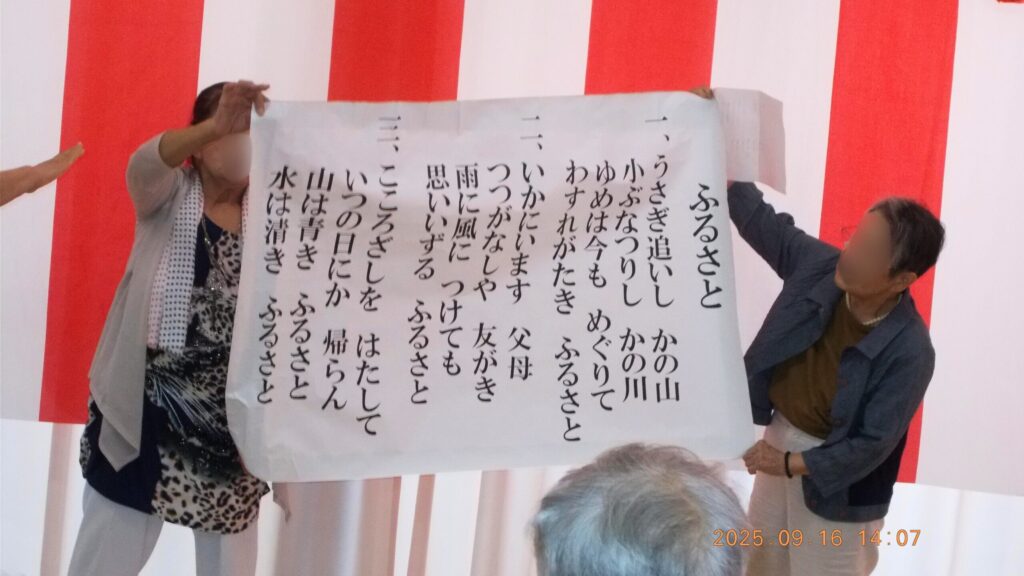 ふるさと
一、うさぎ追いし かの山
小ぶなつりし かの川
ゆめは今も めぐりて
わすれがたき ふるさと
二、いかにいます 父母
つつがなしや 友がき
雨に風に つけても
思いいずる ふるさと
三、こころざしを はたして
いつの日にか 帰らん
山は青き ふるさと
水は清き ふるさと
2025.09.16 14:07